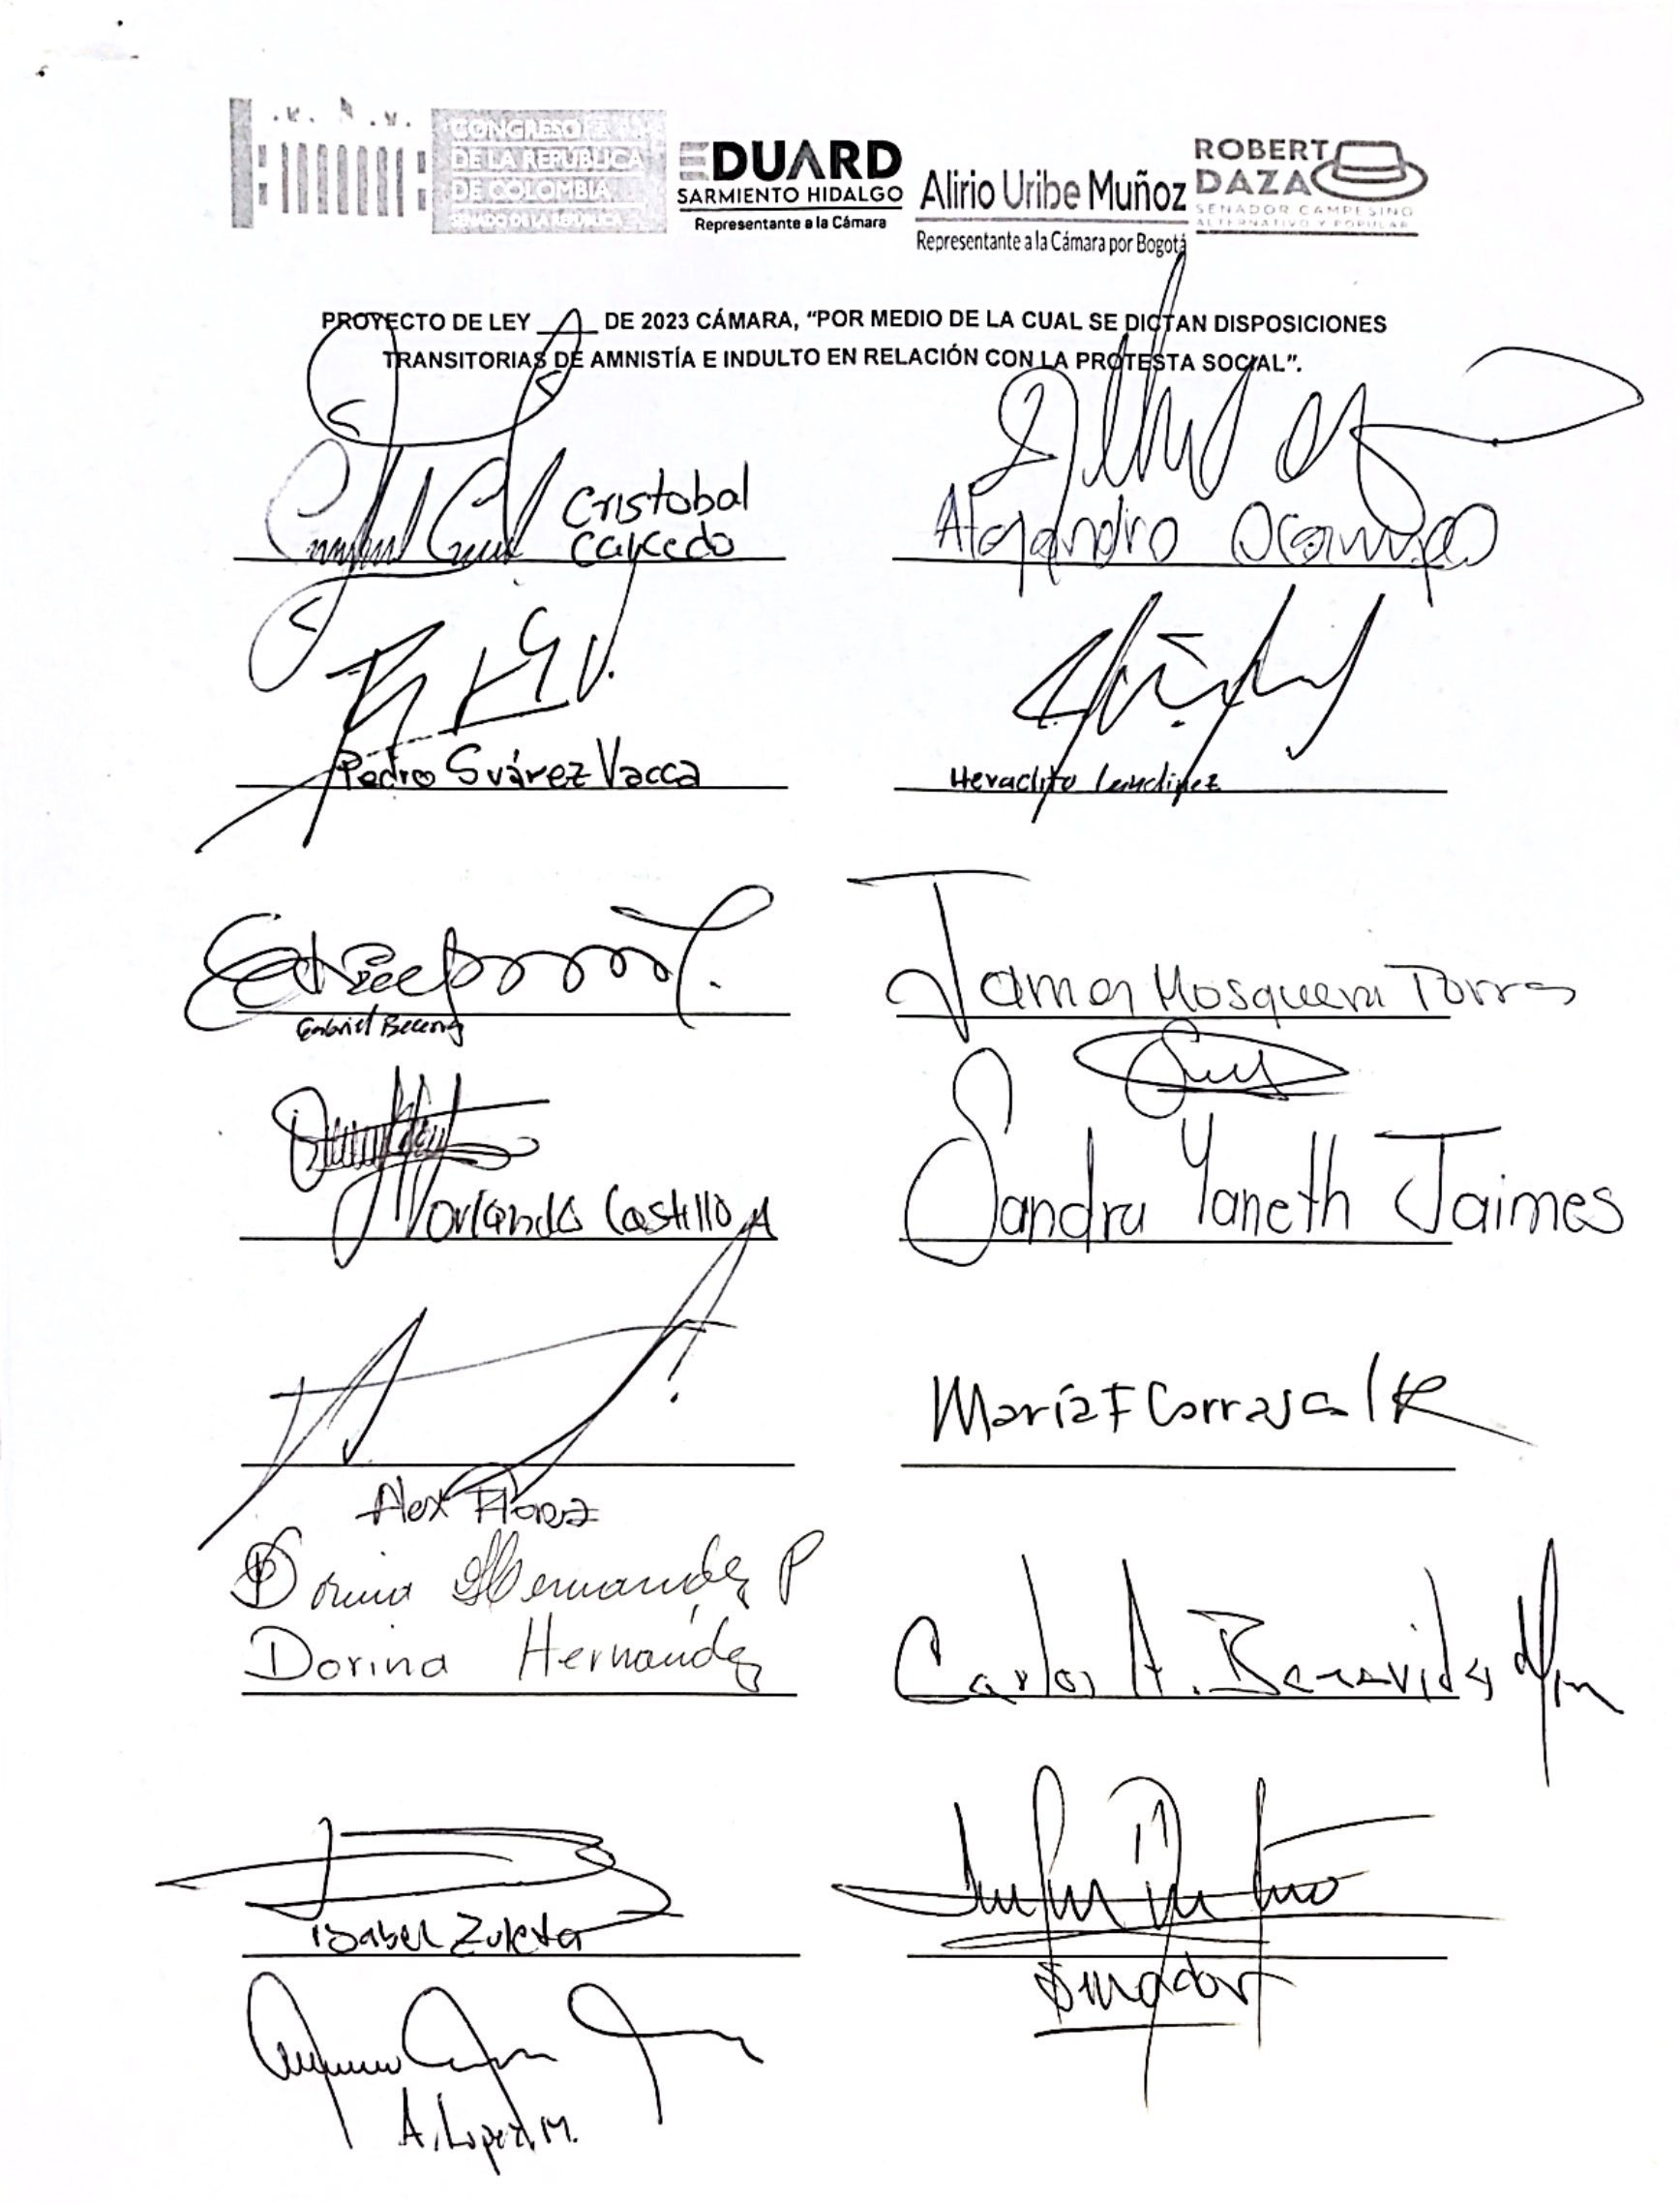 CONGRESO
DE LA REPÚBLICA
DE COLOMBIA
SENADO DE LA REPÚBLICA
EDUARD
SARMIENTO HIDALGO
Representante a la Cámara
Alirio Uribe Muñoz
Representante a la Cámara por Bogotá
ROBERT
DAZA
SENADOR CAMPESINO
ALTERNATIVO Y POPULAR
PROYECTO DE LEY ___ DE 2023 CÁMARA, “POR MEDIO DE LA CUAL SE DICTAN DISPOSICIONES
TRANSITORIAS DE AMNISTÍA E INDULTO EN RELACIÓN CON LA PROTESTA SOCIAL”.
Cristobal
Caicedo
Alejandro Ocampo
Pedro Suárez Vacca
Heraclito
Gabriel Becerra
James Mosquera Torres
Orlando Castillo A
Sandra Yaneth Jaimes
Alex Florez
María F Carrascal R
Dorina Hernández P
Dorina Hernández
Carlos A. Benavides
Isabel Zuleta
Senador
A. López. M.